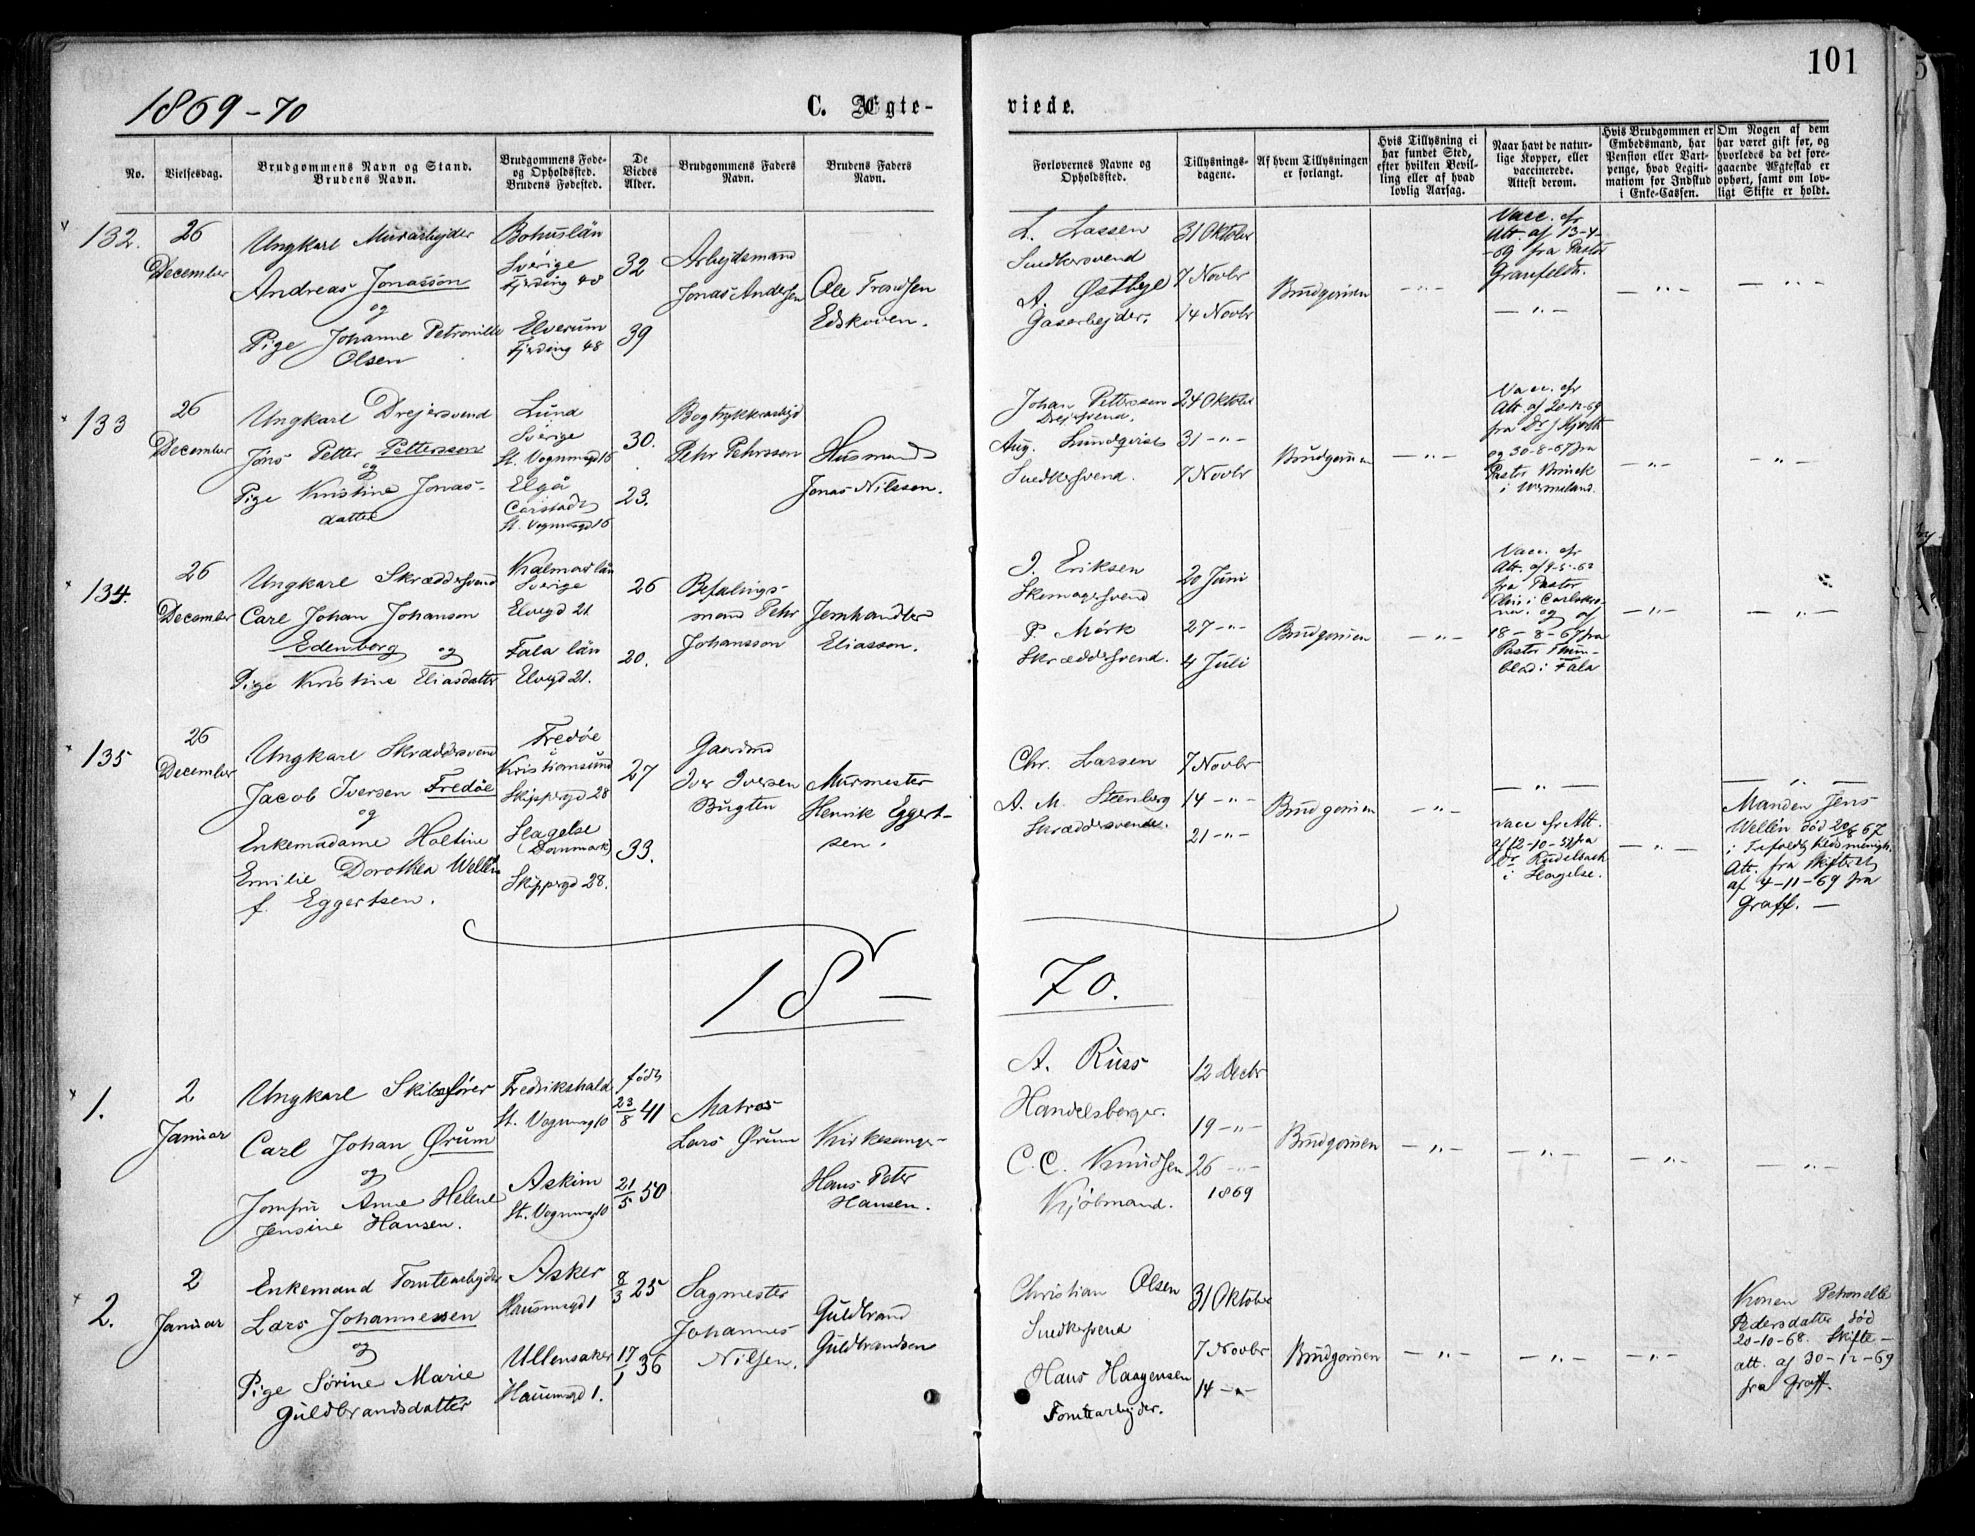 101
1869-70
C. Ægte-
viede.
No.
Vielsesdag.
Brudgommens Navn og Stand.
Brudens Navn.
Brudgommens Føde-
og Opholdssted.
Brudens Fødested.
De
Viedes
Alder.
Brudgommens Faders
Navn.
Brudens Faders
Navn.
Forlovernes Navne og
Opholdssted.
Tillysnings-
dagene.
Af hvem Tillysningen
er forlangt.
Hvis Tillysning ei
har fundet Sted,
efter hvilken Bevil-
ling eller af hvad
lovlig Aarsag.
Naar havt de natur-
lige Kopper, eller
vaccinerede.
Attest derom.
Hvis Brudgommen er
Embedsmand, har
Pension eller Vart-
penge, hvad Legiti-
mation for Indskud
i Enke-Cassen.
Om Nogen af dem
har været gift før, og
hvorledes da det fore-
gaaende Ægteskab er
ophørt, samt om lov-
ligt Skifte er holdt.
132.
26
December
Ungkarl Murarbejder
Andreas Jonasson
og
Pige Johanne Petronille
Olsen
Bohuslän
Sverige
Fjerding 48
Elverum
Fjerding 48
32
39
Arbejdsmand
Jonas Andersen
Ole Frandsen
Edskoven.
L. Lassen
Snedkersvend
A. Østbye
Gasarbejder.
31 Oktober
7 Novbr
14 Novbr
Brudgomen
— " —
Vacc. efr
Att. af 13-4-
-69 fra Pastor
Granfeldt.
— " —
— " —
— " —
133
26
December
Ungkarl Drejersvend
Jöns Petter Pettersson
og
Pige Kristine Jonas-
datter
Lund
Sverige
St. Vognmgd 16
Elgå
Carlstadt
St. Vognmgd 16
30.
23.
Bogtrykkerarbejd
Pehr Pehrsson
Husmand
Jonas Nilsson.
Johan Petterssen
Drejersvend.
Aug. Lundqvist
Snedkersvend.
24 Oktober
31 — " —
7 Novbr
Brudgomen
— " —
Vacc. efr
Att. af 20-12-69
fra Dr J Hjorth
og 30-8-67 fra
Pastor Brinck
i Wermeland.
— " —
— " —
134.
26
December
Ungkarl Skræddersvend
Carl Johan Johanson
Edenborg og
Pige Kristine Eliasdatter
Kalmar län
Sverige
Elvegd 21
Fala län
Elvegd 21.
26
20.
Befalings-
mand Pehr
Johansson
Jernhandler
Eliasson.
J. Eriksen
Skomagersvend
P. Mörk
Skræddersvend.
20 Juni
27 — " —
4 Juli
Brudgomen
— " —
Vacc. efr
Att. af 9-5-62
fra Pastor
Olin i Carlskro-
na. og af
18-8-67 fra
Pastor
i Fala
— " —
— " —
135
26
December
Ungkarl Skræddersvend
Jacob Iversen Fredöe
og
Enkemadame Hortine
Emilie Dorothea Wellén
f. Eggertsen.
Fredöe
Kristiansund
Skippergd 28
Slagelse
(Danmark)
Skippergd 28.
27
33.
Gaardmd
Iver Iversen
Bugten
Murmester
Henrik Eggert-
sen.
Chr. Larsen
A. M. Steenberg
Skræddersvende.
7 Novbr
14 — " —
21 — " —
Brudgomen
— " —
— " —
Vacc efr Att.
af 12-10-37 fra
Dr Rudelbach
i Slagelse.
— " —
— " —
Manden Jens
Wellén død 20/8 67
i Trefoldighedsmenigh.
Att. fra Skifteret
af 4-11-69 fra
Graff. —
18 —
70.
1.
2
Januar
Ungkarl Skibsfører
Carl Johan Ørum
og
Jomfru Anne Helene
Jensine Hansen.
Fredrikshald
St. Vognmgd 10
Askim
St. Vognmgd 10
født
23/8 41
21/5 50
Matros
Lars Ørum
Kirkesanger
Hans Peter
Hansen.
A. Russ
Handelsborger.
C. C. Knudsen
Kjöbmand.
12 Decbr
19 — " —
26 — " —
1869
Brudgomen
— " —
— " —
— " —
— " —
2.
2
Januar
Enkemand Tomtearbejder
Lars Johannessen
og
Pige Sörine Marie
Guldbrandsdatter
Asker
Hausmsgd 1
Ullensaker
Hausmsgd 1.
8/3 25
17/1 36
Sagmester
Johannes
Nilsen.
Guldbrand
Guldbrandsen
Christian Olsen
Snedkersvend
Hans Haagensen
Tomtearbejder.
31 Oktober
7 Novbr
14 — " —
Brudgomen
— " —
— " —
— " —
Konen Petronelle
Pedersdatter død
20-10-68. Skifte-
att. af 30-12-69
fra Graff.